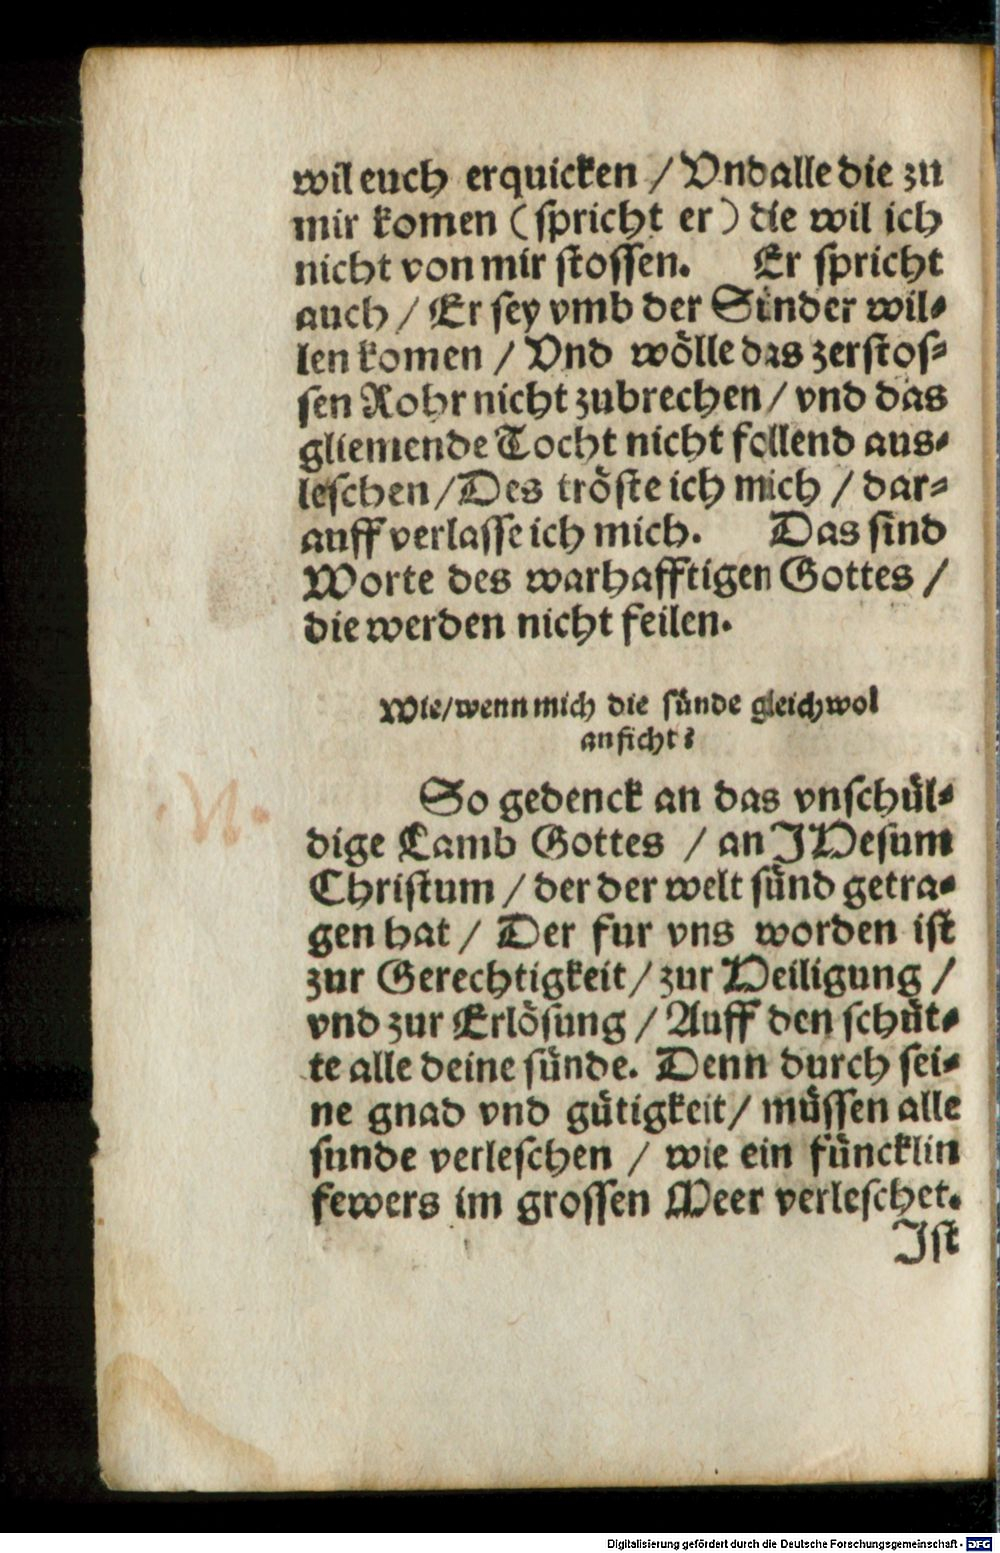 wil euch erquicken / Vnd alle die zu
mir komen (spricht er) die wil ich
nicht von mir stossen. Er spricht
auch / Er sey vmb der Sünder wil-
len komen / Vnd wölle das zerstos-
sen Rohr nicht zubrechen / vnd das
gliemende Tocht nicht follend aus-
leschen / Des tröste ich mich / dar-
auff verlasse ich mich. Das sind
Worte des warhafftigen Gottes /
die werden nicht feilen.
Wie / wenn mich die sünde gleichwol
anficht?
So gedenck an das vnschül-
dige Lamb Gottes / an JHesum
Christum / der der welt sünd getra-
gen hat / Der fur vns worden ist
zur Gerechtigkeit / zur Heiligung /
vnd zur Erlösung / Auff den schüt-
te alle deine sünde. Denn durch sei-
ne gnad vnd gütigkeit / müssen alle
sunde verleschen / wie ein füncklin
fewers im grossen Meer verleschet.
Ist
Digitalisierung gefördert durch die Deutsche Forschungsgemeinschaft - DFG